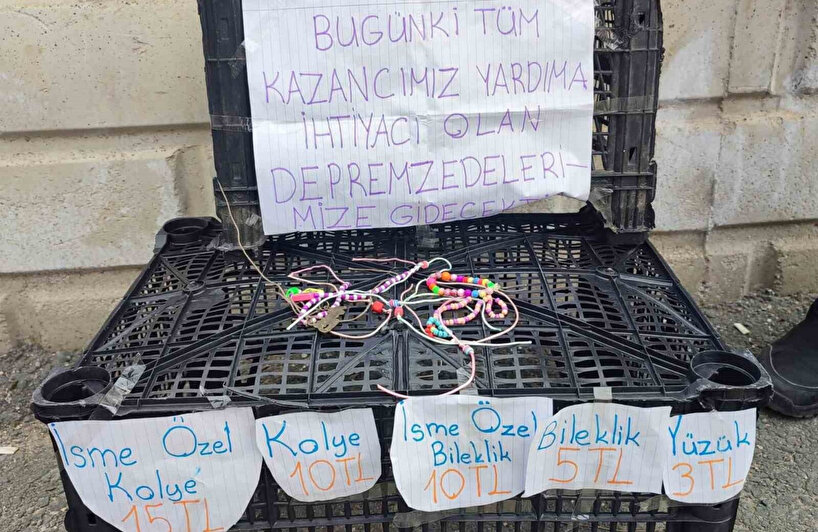 BUGÜNKİ TÜM
KAZANCIMIZ YARDIMA
İHTİYACI OLAN
DEPREMZEDELERİ-
MİZE GİDECEKT
İsme Özel
Kolye
15TL
Kolye
10TL
İsme Özel
Bileklik
10TL
Bileklik
5TL
Yüzük
3TL